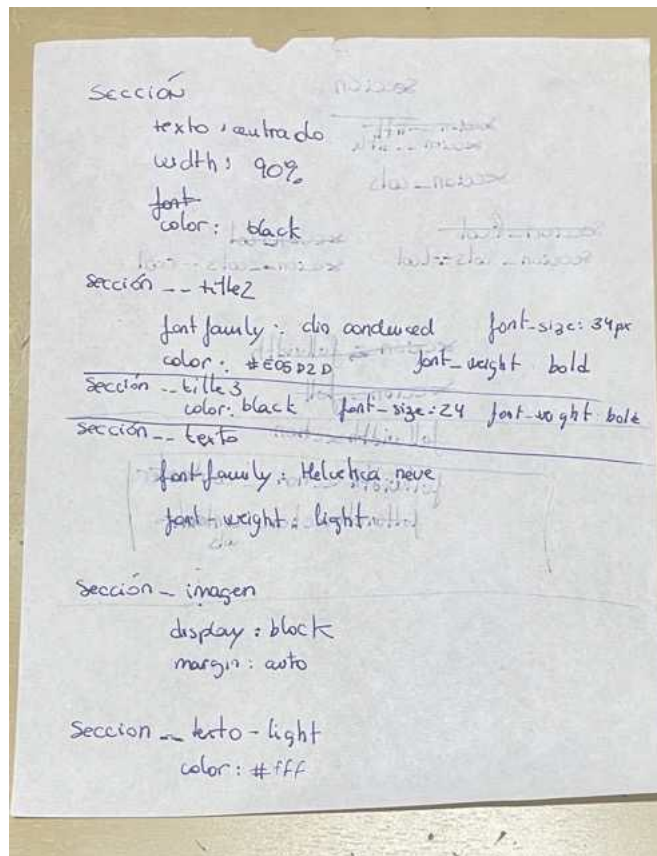 Sección
texto: centrado
width: 90%
font
color: black
Sección -- title2
font family: din condensed font-size: 34px
color: #E05D2D font-weight bold
Sección -- title3
color: black font-size: 24 font-weight bold
Sección -- texto
font family: Helvetica neue
font-weight: light
Sección - imagen
display: block
margin: auto
Seccion -- texto-light
color: #fff